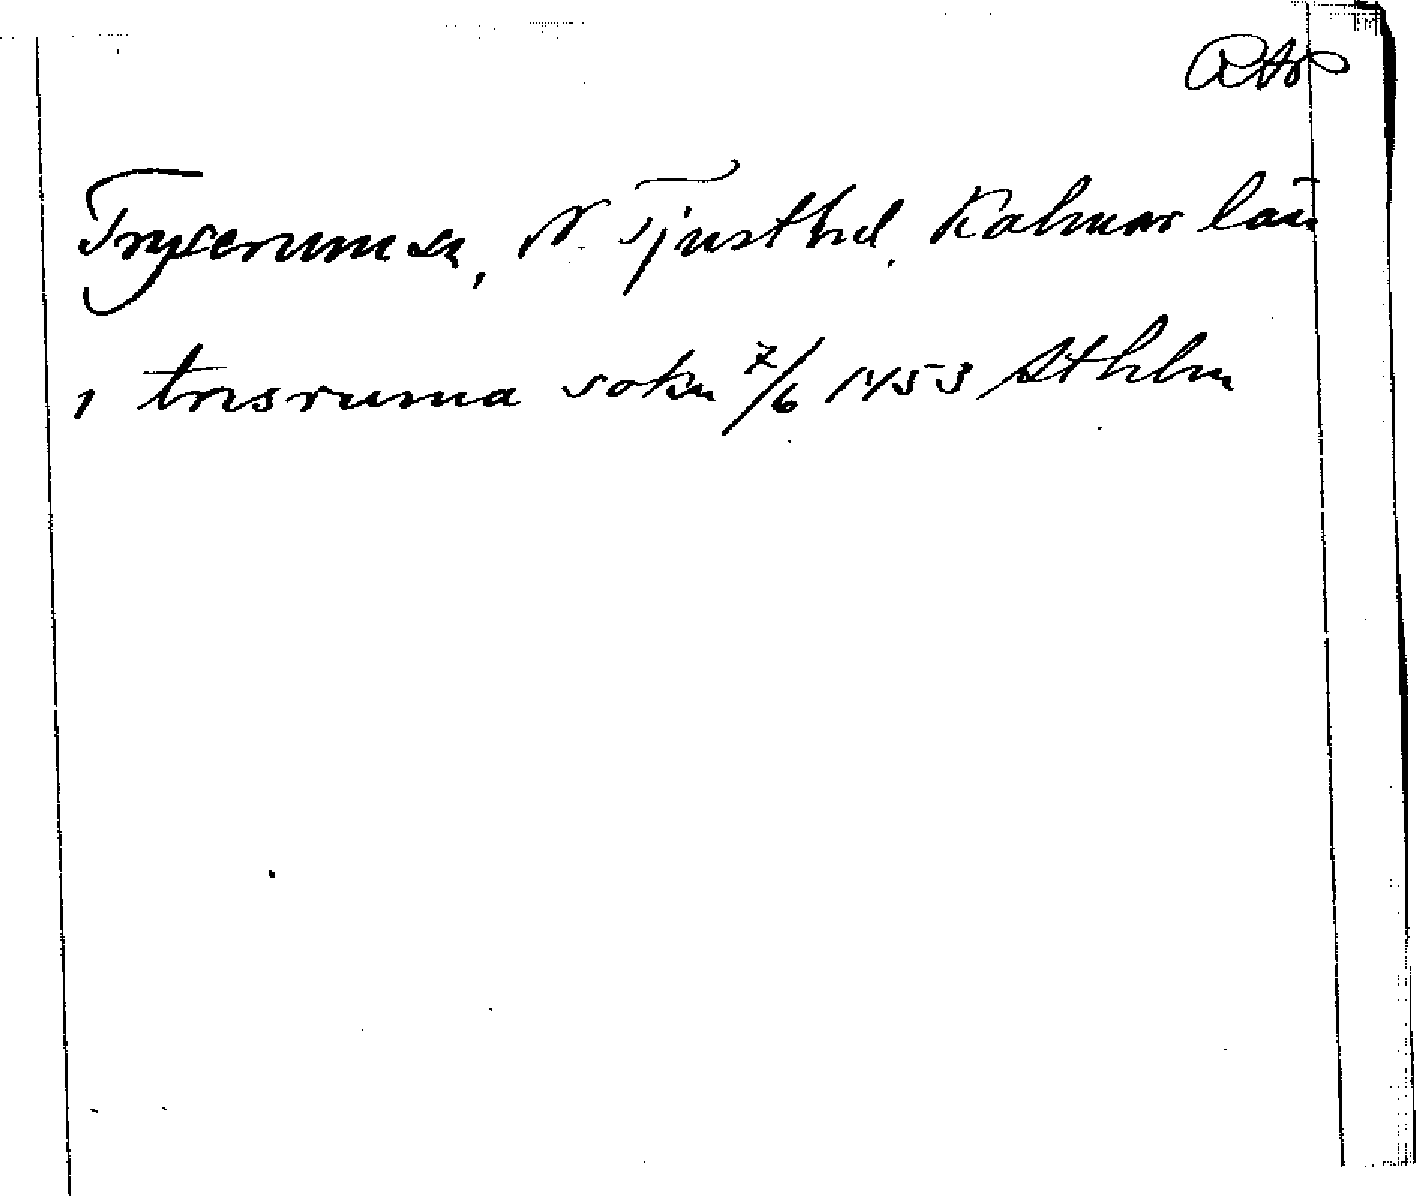 RAP
Tryserum sn, N. Tjust hd. Kalmar län
i trisruma sokn 7/6 1453 Sthlm